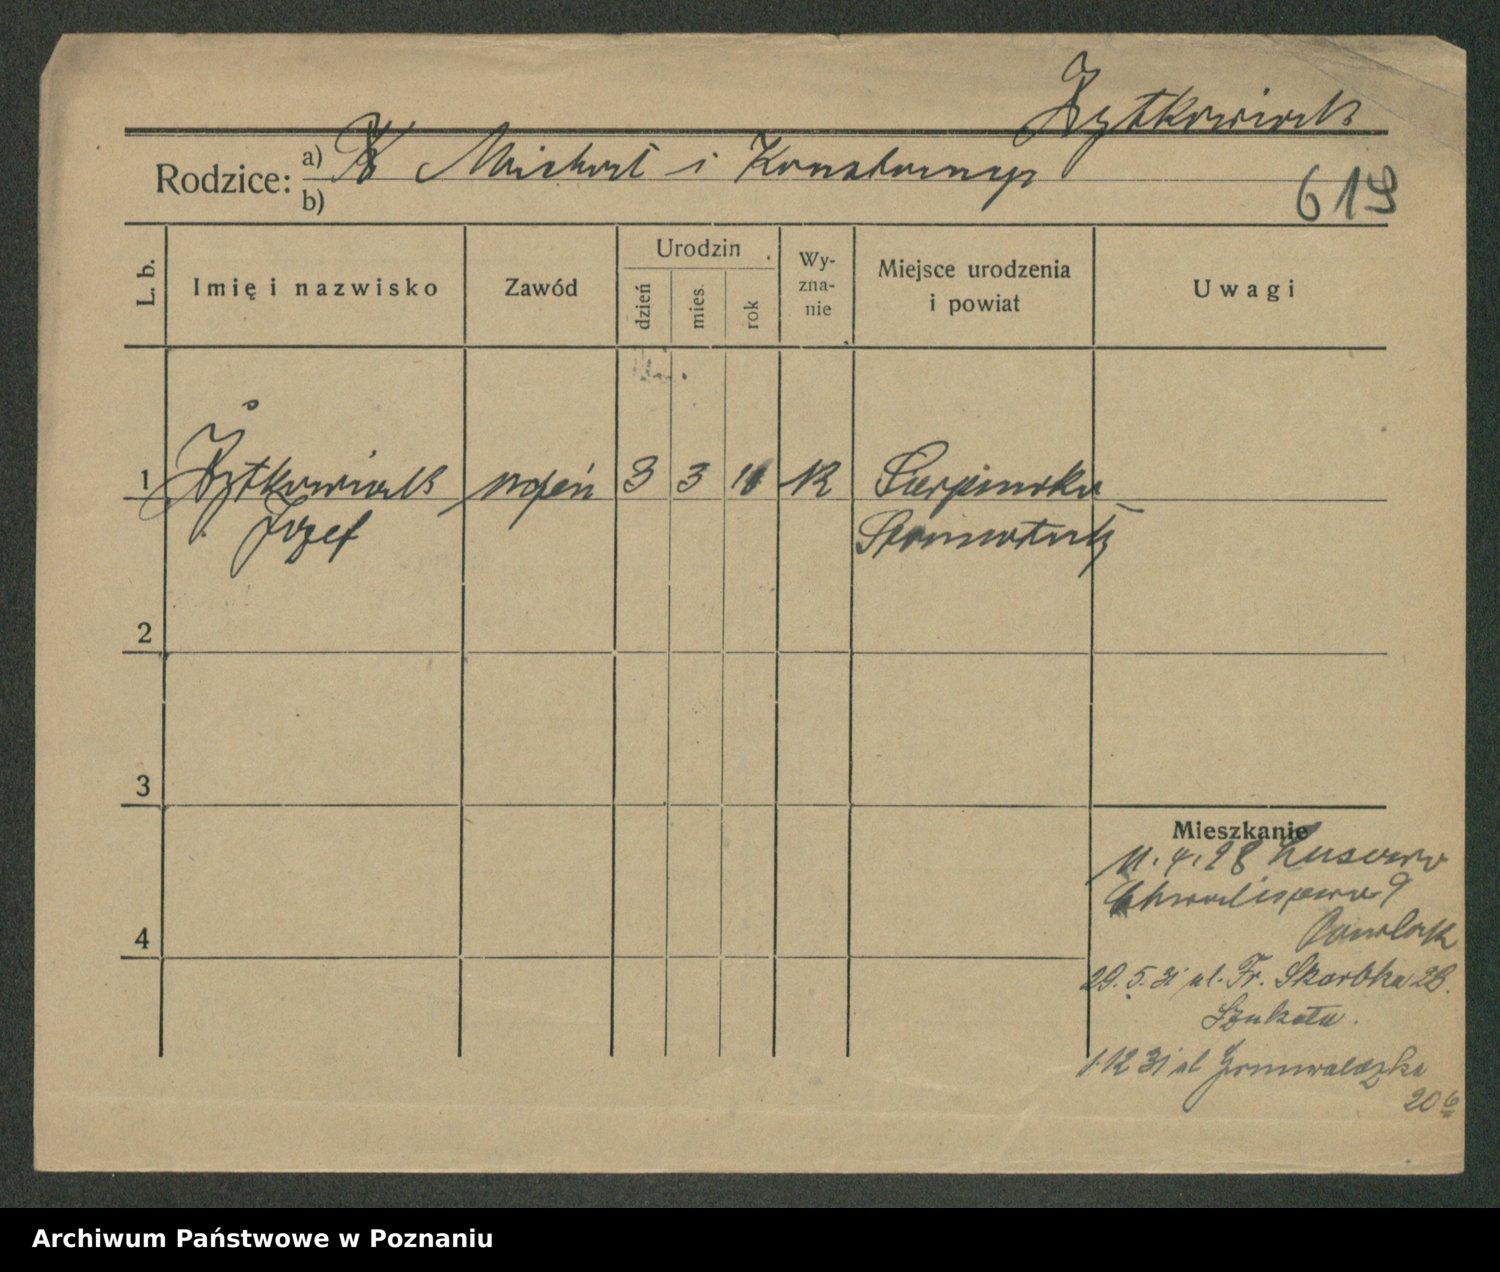 Żytkowiak
Rodzice: a) Michał i Konstancya
b)
619
L. b.
Imię i nazwisko
Zawód
Urodzin
dzień
mies.
rok
Wy-
zna-
nie
Miejsce urodzenia
i powiat
Uwagi
1 Żytkowiak uczeń 3 3 11 k
Józef
2
3
Mieszkanie
11.4.28 Lusowo
9
Pawlak
4
29.5.31 ul. Fr. Skarbka 28.
Szukała.
1.12 31 ul Grunwaldzka
20 6
Archiwum Państwowe w Poznaniu